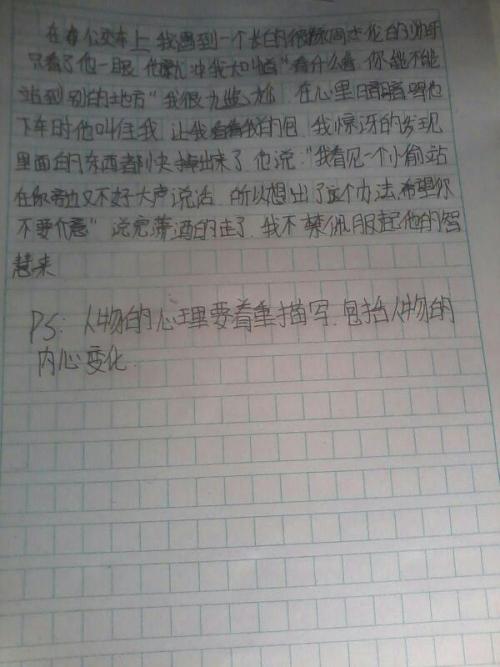 在公交车上我遇到一个长的很像周杰伦的帅哥
只看了他一眼他就冲我大叫道“看什么看你能不能
站到别的地方”我很尴尬在心里暗暗骂他
下车时他叫住我让我看看我的包我惊讶的发现
里面的东西都快掉出来了他说：“我看见一个小偷站
在你旁边又不好大声说话所以想出了这个办法，希望你
不要介意”说完潇洒的走了我不禁佩服起他的智
慧来
PS：人物的心理要着重描写，包括人物的
内心变化